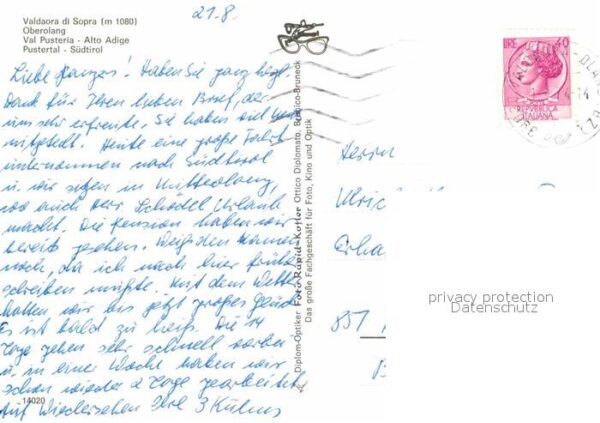 Valdaora di Sopra (m 1080)
Oberolang
Val Pusteria - Alto Adige
Pustertal - Südtirol
21.8.
Liebe Haben Sie ganz herzl.
Dank für Ihren lieben Brief, der
uns sehr erfreute. Sie haben viel
Heute eine große Fahrt
unternommen nach Südtirol
u. wir sitzen in Mitterolang,
wo auch Urlaub
macht. Die Pension haben wir
bereits gesehen.
noch, da ich nach hier
schreiben mußte. Mit dem Wetter
hatten wir bis jetzt großes Glück
Es ist bald zu heiß. Die 14
Tage gehen sehr schnell vorbei
u. in einer Woche haben wir
schon wieder 2 Tage gearbeitet
Auf Wiedersehen Ihre 3
14020
Diplom-Optiker Foto Rapid-Kofler Ottico Diplomato, Brunico-Bruneck
Das große Fachgeschäft für Foto, Kino und Optik
LIRE 40
REPVBBLICA
ITALIANA
Herrn
857
privacy protection
Datenschutz